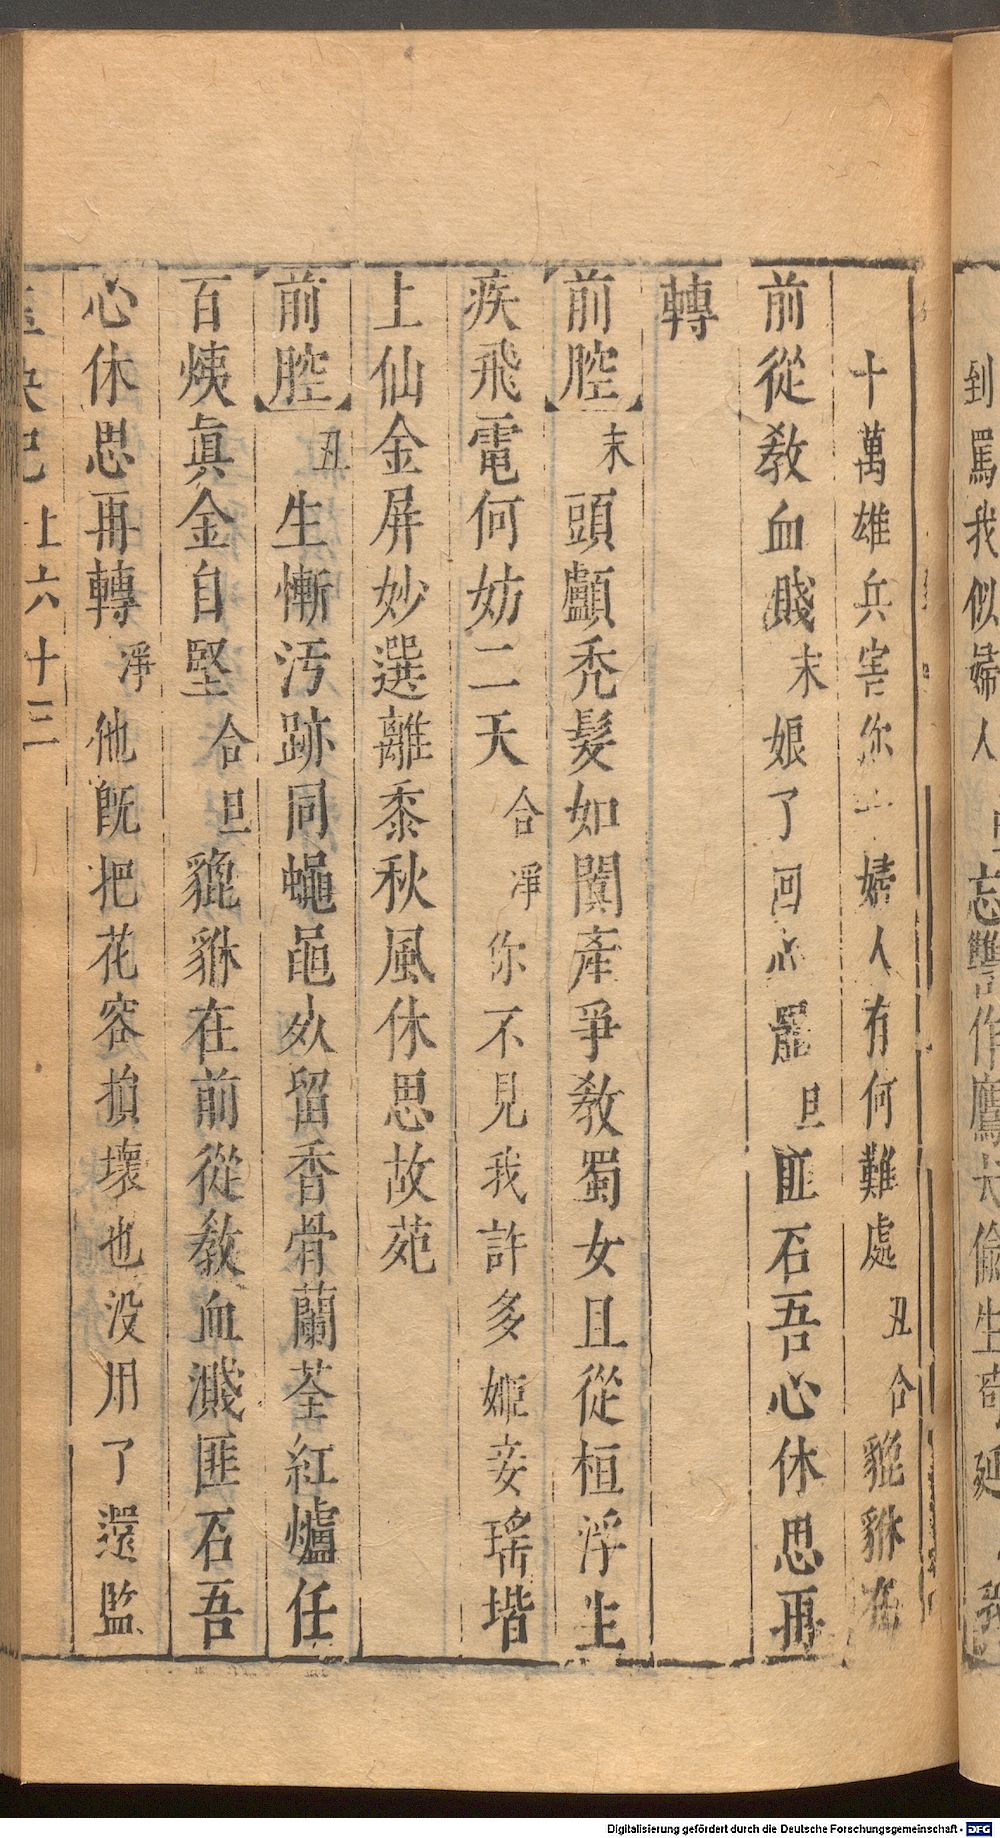 到罵我似婦人
忘讐作鷹犬偷生苟延
十萬雄兵害你一婦人有何難處丑合貔貅在
前從教血賤末娘了回心罷旦匪石吾心休思再
轉
前腔末頭顱禿髮如闐產爭教蜀女且從桓浮生
疾飛電何妨二天合淨你不見我許多姬妾瑤堦
上仙金屏妙選離黍秋風休思故苑
前腔丑生慚汚跡同蠅黽㸃留香骨蘭荃紅爐任
百煉眞金自堅合旦貔貅在前從教血濺匪石吾
心休思再轉淨他既把花容損壞也没用了還監
記上六十三
Digitalisierung gefördert durch die Deutsche Forschungsgemeinschaft - DFG